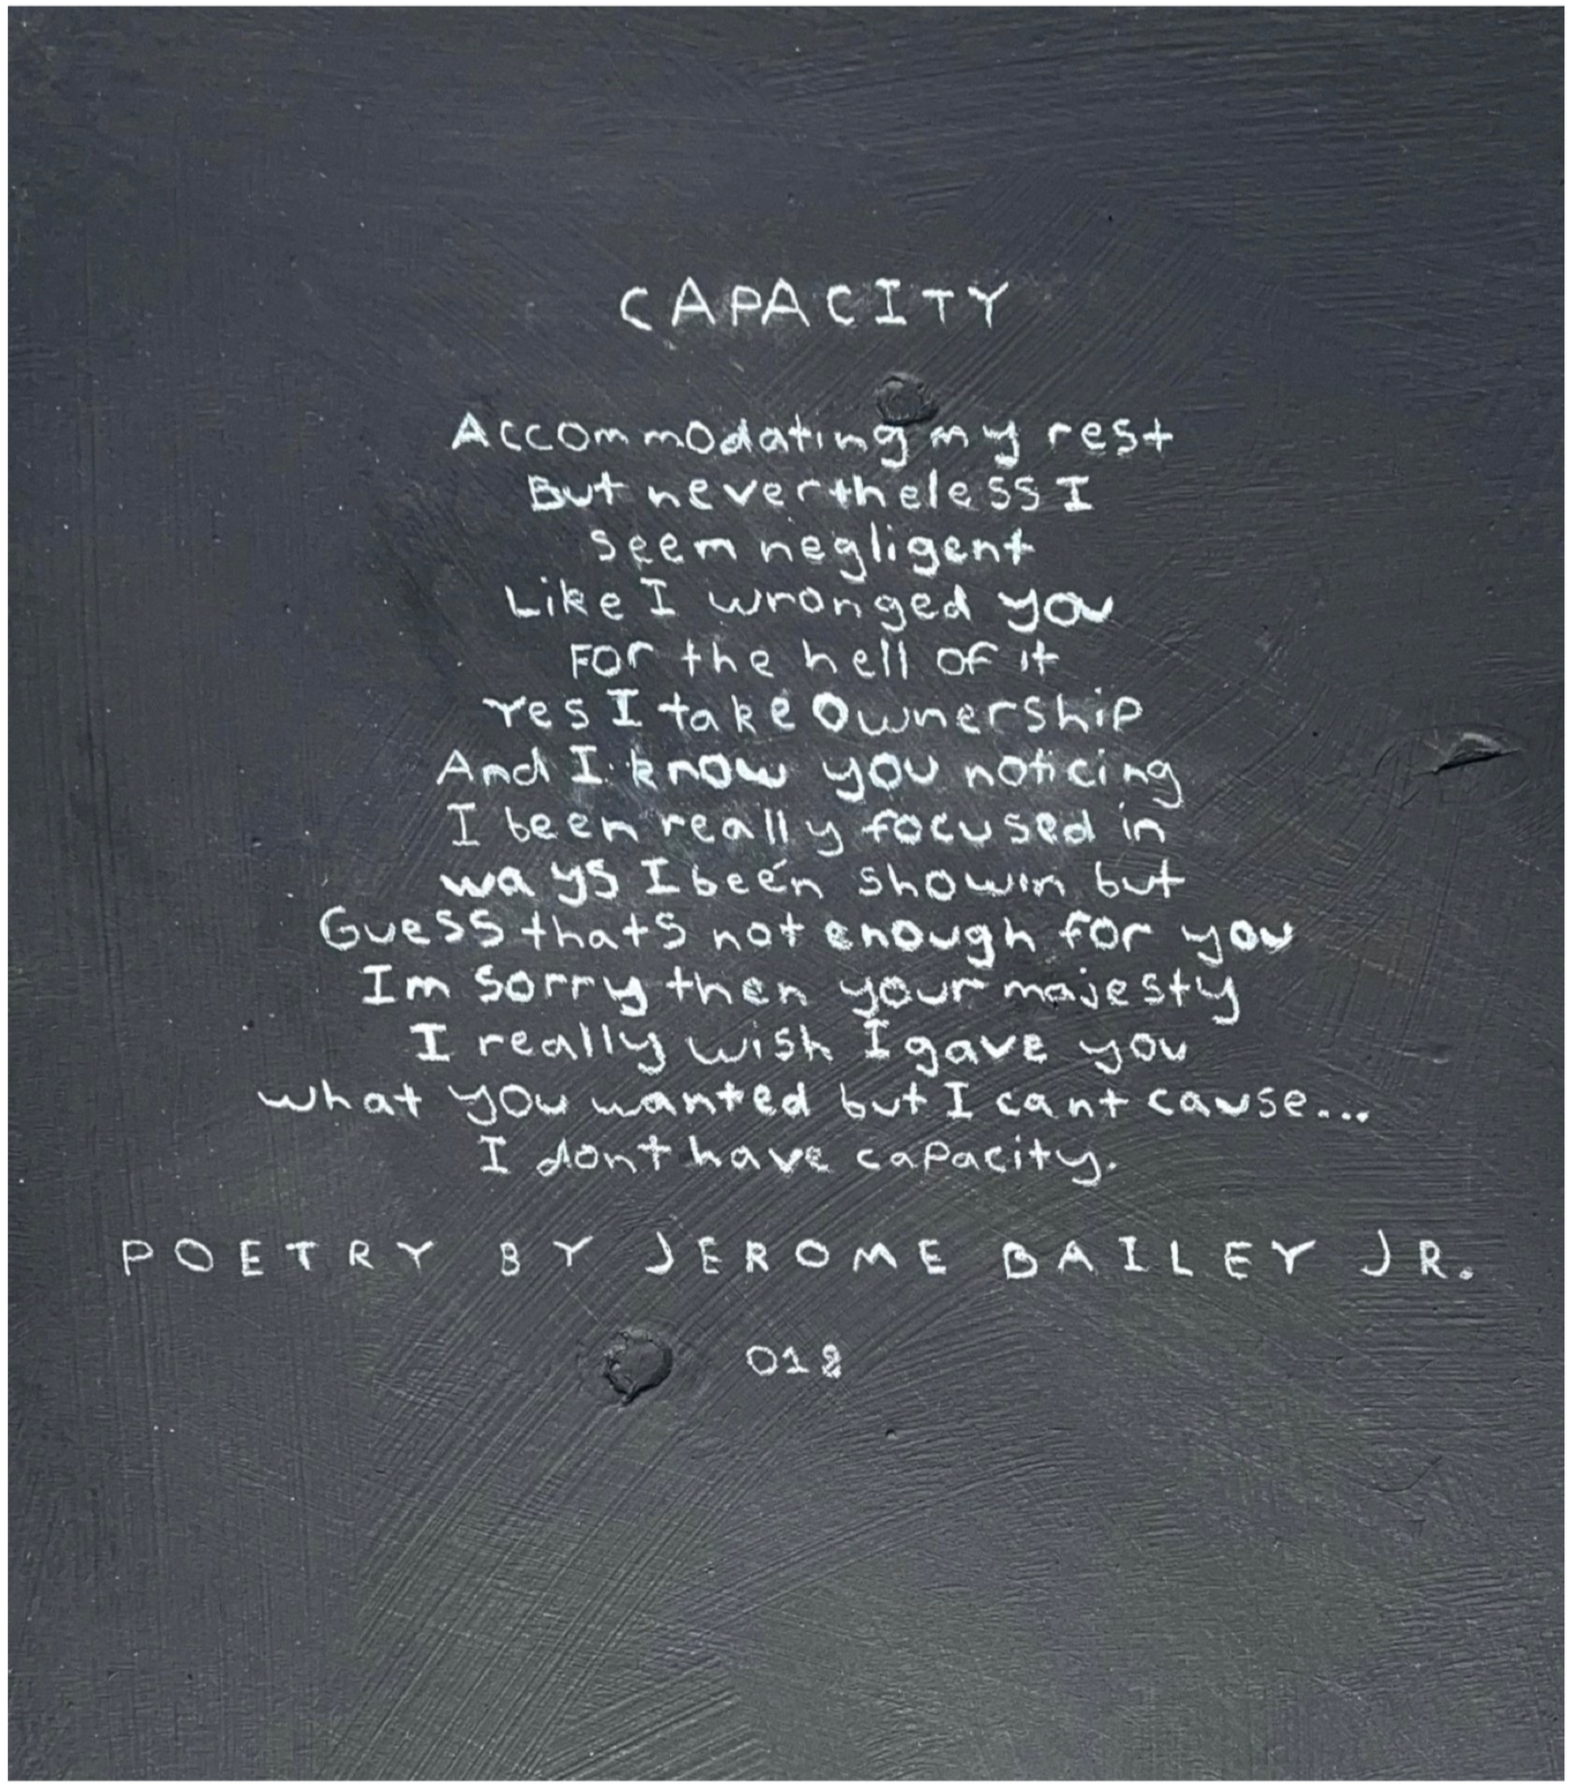 CAPACITY
Accommodating my rest
But nevertheless I
seem negligent
Like I wronged you
For the hell of it
Yes I take Ownership
And I know you noticing
I been really focused in
ways I been showin but
Guess thats not enough for you
Im sorry then your majesty
I really wish I gave you
what you wanted but I cant cause...
I dont have capacity.
POETRY BY JEROME BAILEY JR.
018